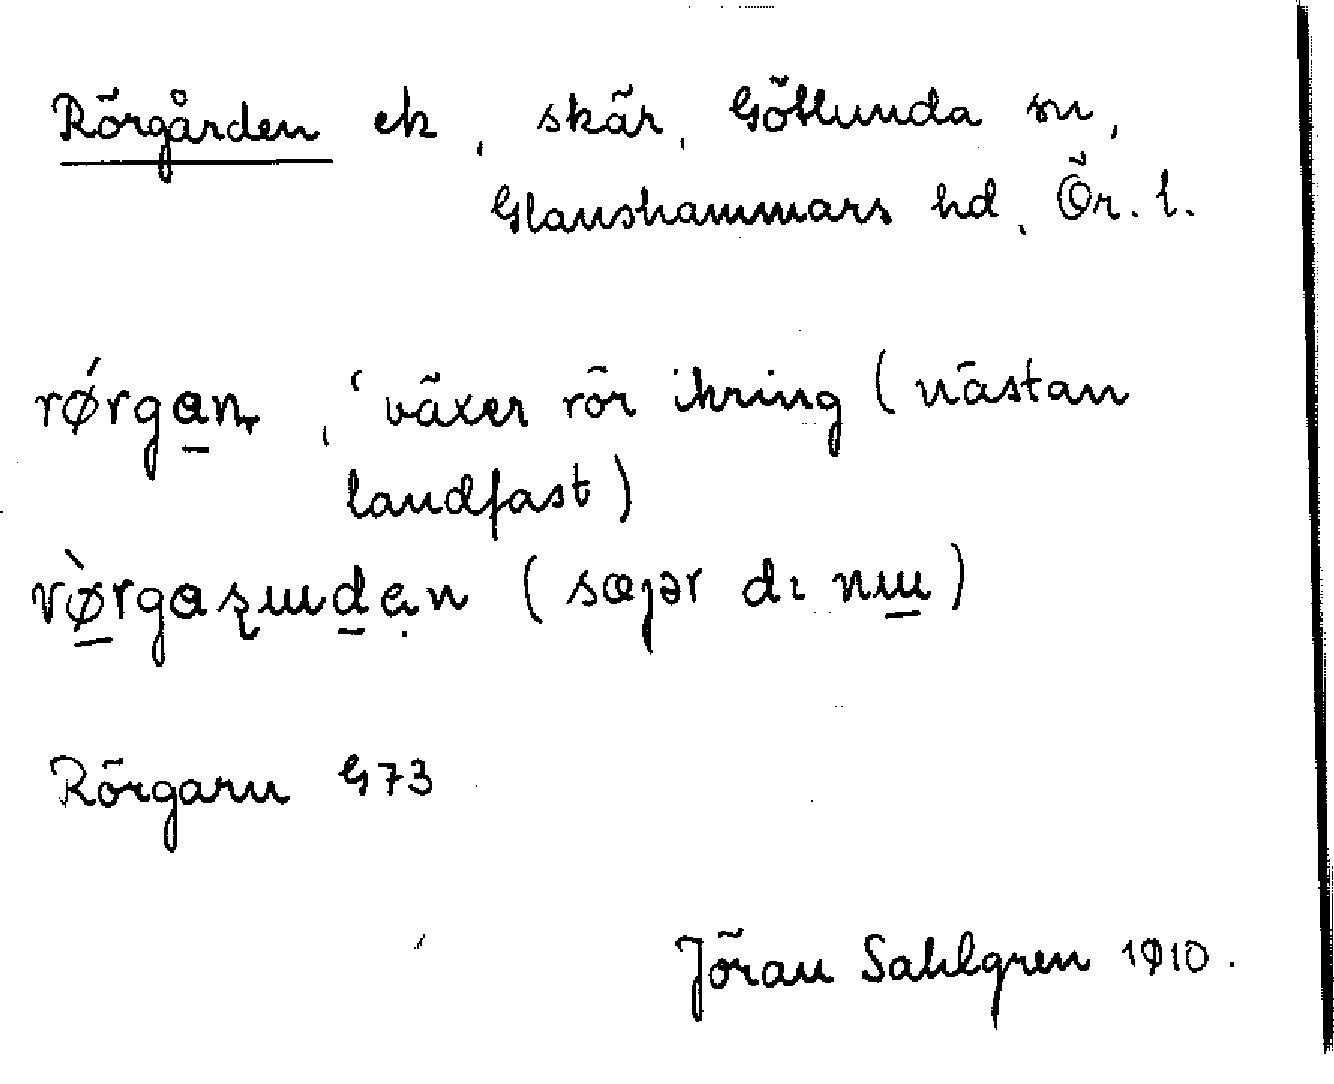 Rörgården ek, skär, Götlunda sn,
Glanshammars hd, Ör. l.
rǿrgan, 'växer rör ikring (nästan
landfast)
(sæjər dı nɯ)
Rörgarn G73
Jöran Sahlgren 1910.